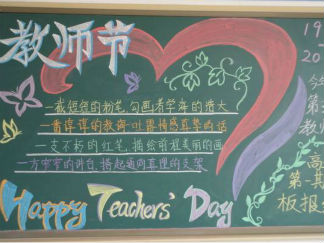 教师节
一截短短的粉笔，勾画着学海的浩大
一番谆谆的教诲，吐露情感真挚的话
一支不朽的红笔，描绘前程美丽的画
一方窄窄的讲台，搭起通向真理的支架
Happy Teachers' Day
19
20
今
第
教师
高
第一其
板报